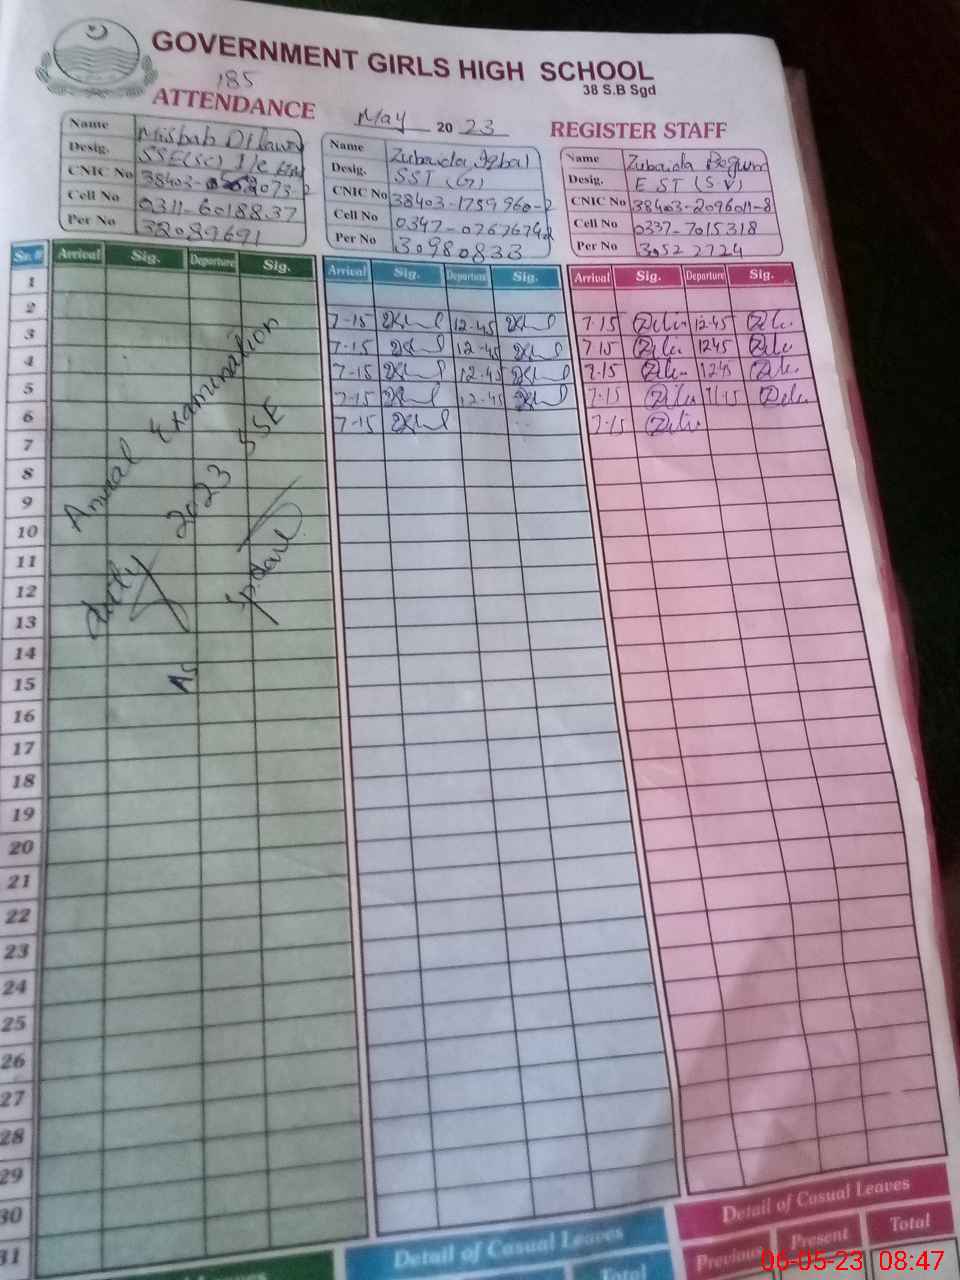 GOVERNMENT GIRLS HIGH SCHOOL
38 S.B Sgd
185
ATTENDANCE May 2023 REGISTER STAFF
Name Misbah
Desig. SSE(Sc) I/c
CNIC No 38403-
Cell No 0311-6018837
Per No 32089691
Name Zubaida Iqbal
Desig. SST (G)
CNIC No 38403-1759960-2
Cell No 0347-07676742
Per No 30980833
Name Zubaida Begum
Desig. EST (S.V)
CNIC No 38403-2096011-8
Cell No 0337-7015318
Per No 30522724
Sr. # Arrival Sig. Departure Sig. Arrival Sig. Departure Sig. Arrival Sig. Departure Sig.
1
2 7-15 12-45 7-15 12-45
3 7-15 12-45 7-15 12-45
4 7-15 12-45 7-15 12-45
5 7-15 12-45 7-15 11-15
6 7-15 7-15
7
8
9
10
11
12
13
14
15
16
17
18
19
20
21
22
23
24
25
26
27
28
29
30
31
Annual Examination
duty 2023 SSE
Detail of Casual Leaves
Total
Detail of Casual Leaves
Previous Present Total
06-05-23 08:47